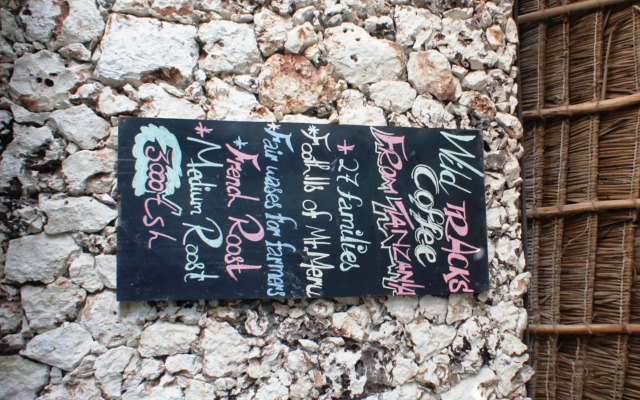 Wild TRACKS
Coffee
FROM TANZANIA
* 27 families
* Foothills of Mt. Meru
* Fair wases for farmers
* Frend Roost
* Medium Roost
3000/Tsh